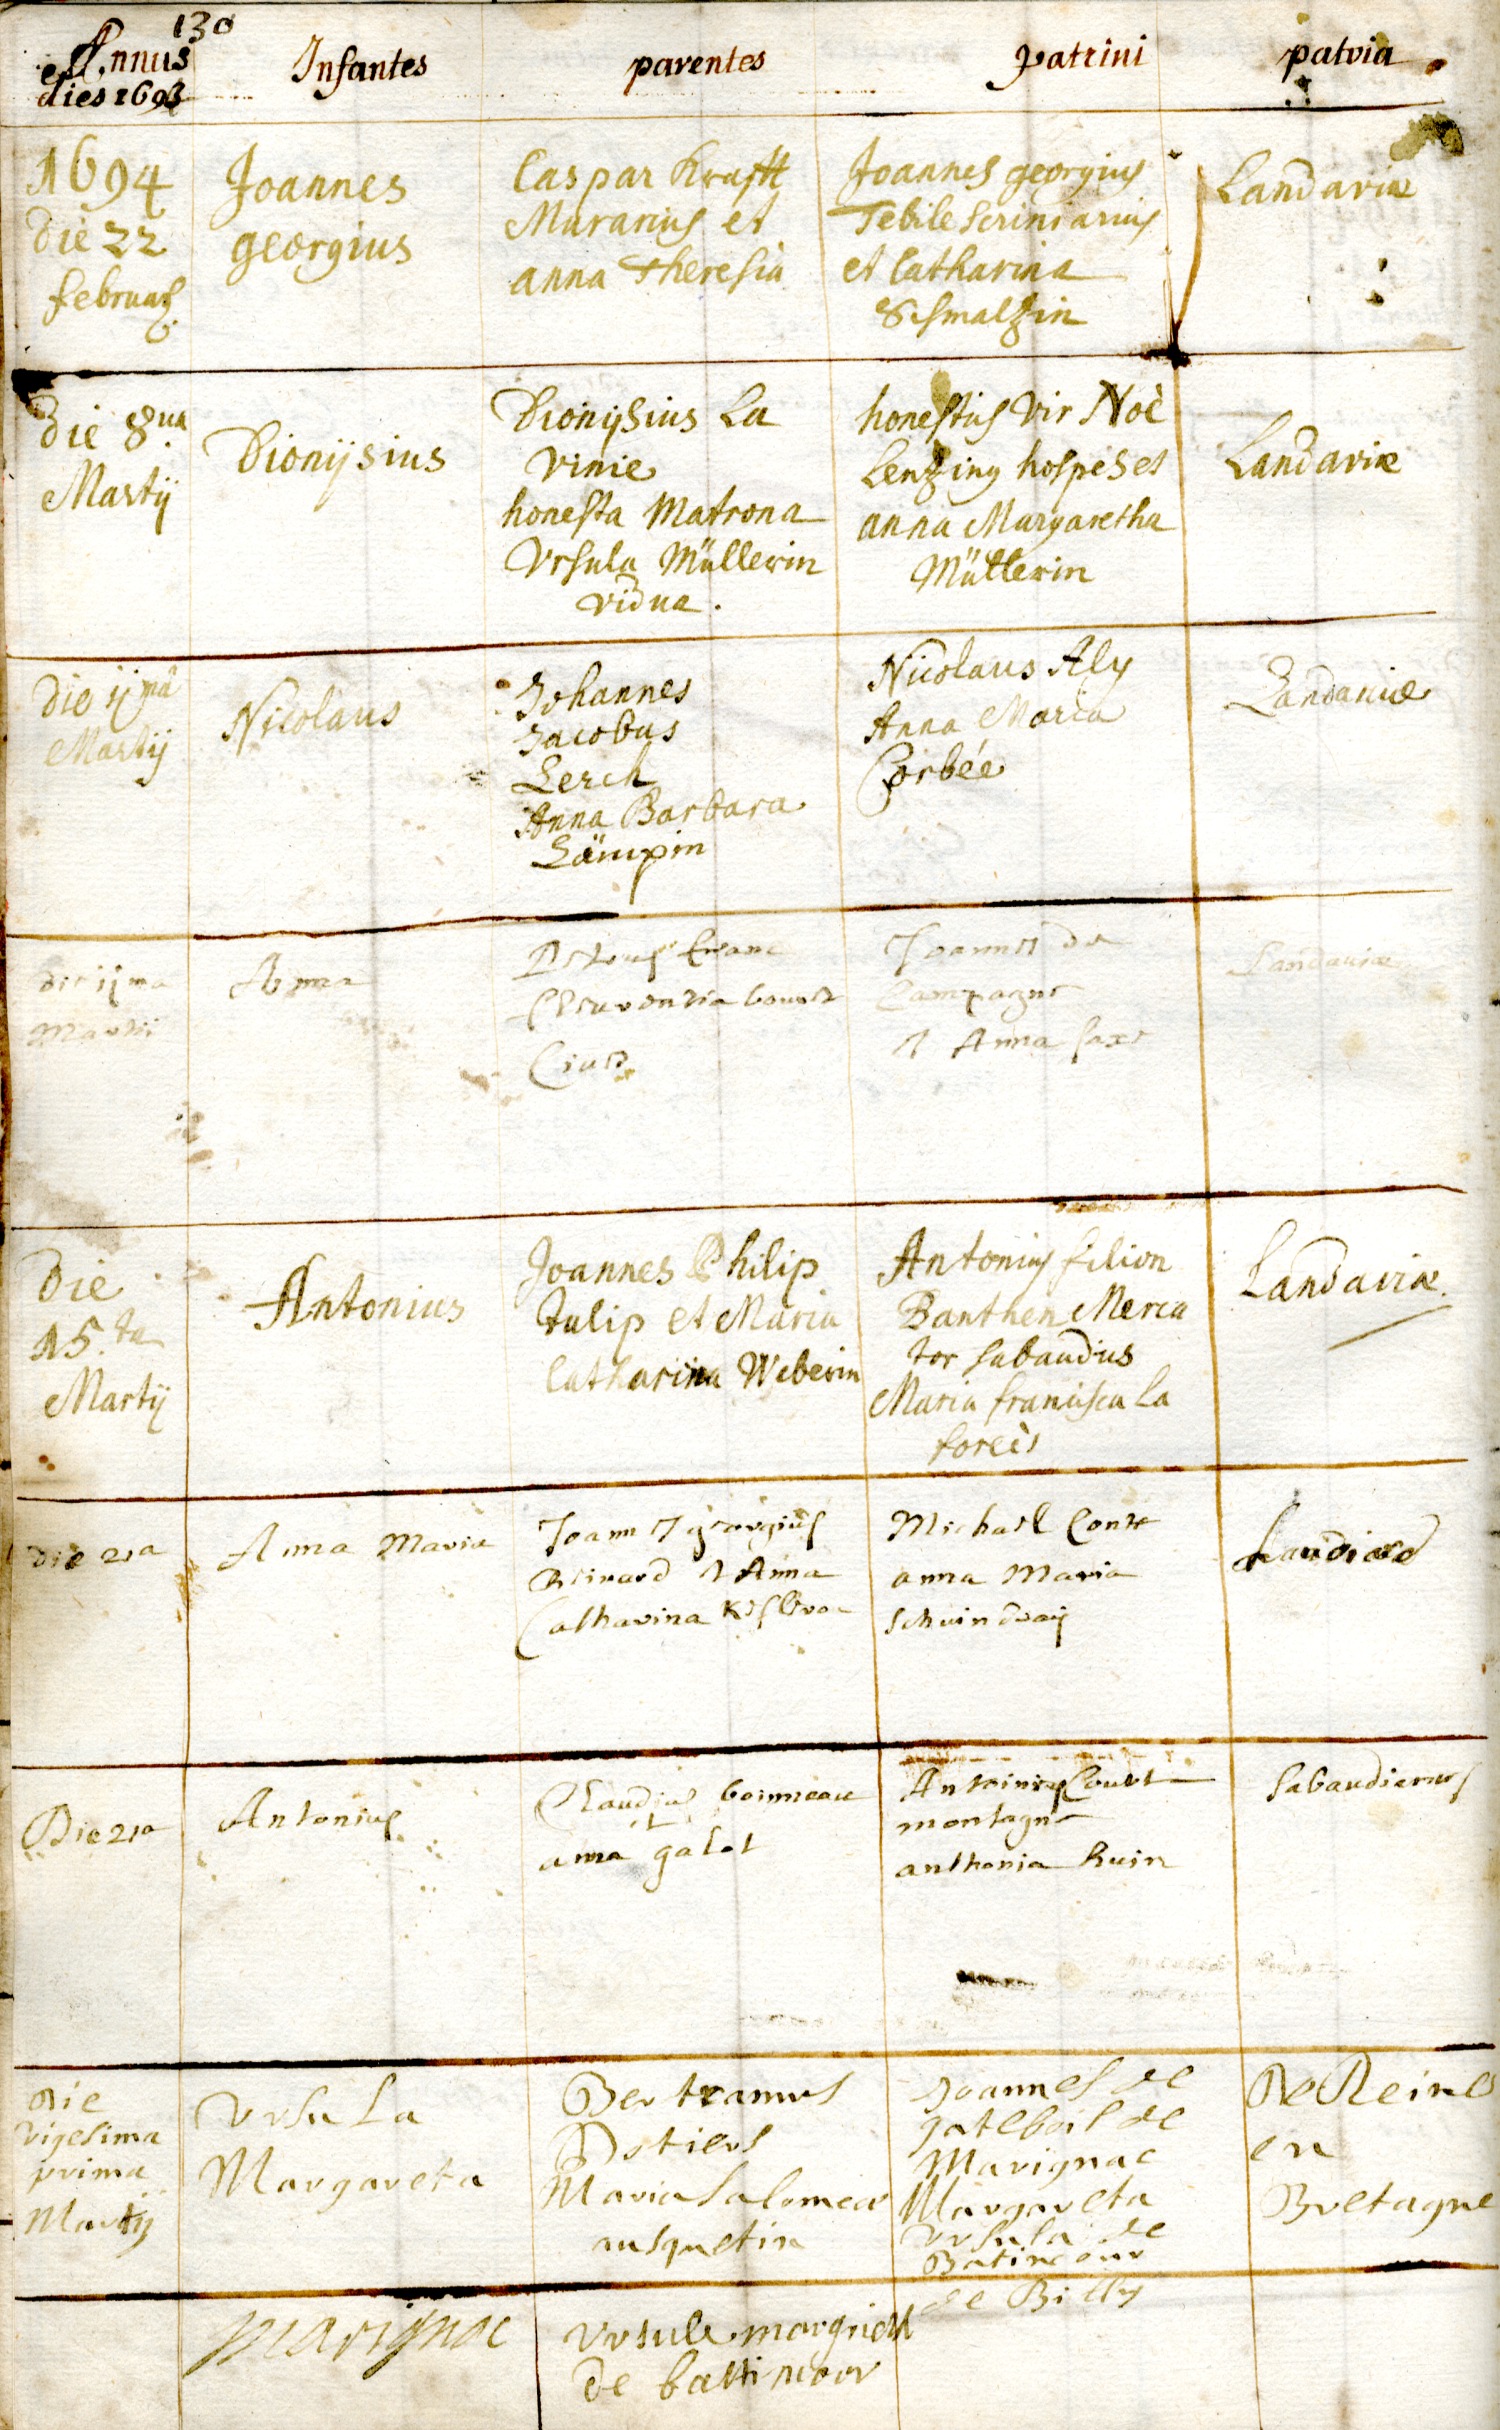 130
Annus
et
dies 1693
Infantes
parentes
patrini
patria
1694
die 22
februarij
Joannes
georgius
Caspar Krafft
Murarius et
anna Theresia
Joannes georgius
Tebile Scriniarius
et Catharina
Schmaltzin
Landaviæ
die 8ua
Martij
Dionijsius
Dionijsius La
Vinie
honesta Matrona
Vrsula Müllerin
Vidua.
honestus Vir Noè
Lentzing hospes et
anna Margaretha
Müllerin
Landaviæ
Die ijmâ
Martij
Nicolaus
Johannes
Jacobus
Lerch
Anna Barbara
Lämpin
Nicolaus Aly
Anna Maria
Corbée
Landaviæ
die ijma
Martii
Anna
Joannes de
Campagne
Anna Saxe
Landaviæ
Die
15.ta
Martij
Antonius
Joannes Philip
tulip et Maria
Catharina Weberin
Antonius filion
Banthen Merca
tor Sabaudus
Maria francisca La
foreès
Landaviæ.
Die 21a
Anna Maria
Joannes georgius
Reinard & Anna
Catharina
Michael Conte
anna Maria
Die 21a
Antonius
Claudius bonneau
et
anna galot
Antonius Court
montagne
anthonia huin
Sabaudienus
Die
Vigesima
prima
Martij
Vrsula
Margareta
Bertramus
Potiers
Maria Salomea
rusquetin
Joannes de
gateboil de
Marignac
Margareta
Vrsula de
Batincour
de Billy
De Reines
en
Bretagne
Marignac
Vrsule margriett
de battincour